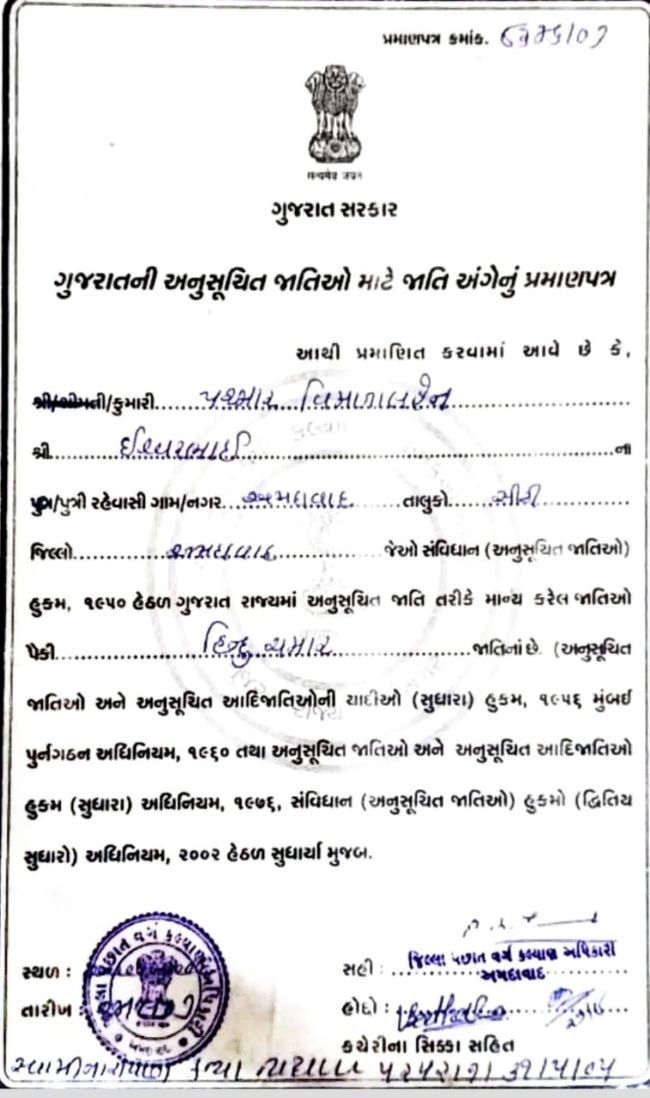 પ્રમાણપત્ર ક્રમાંક.
सत्यमेव जयते
ગુજરાત સરકાર
ગુજરાતની અનુસૂચિત જાતિઓ માટે જાતિ અંગેનું પ્રમાણપત્ર
આથી પ્રમાણિત કરવામાં આવે છે કે,
શ્રી/શ્રીમતી/કુમારી............પરમાર.........
શ્રી.........ઈશ્વરભાઈ.........ના
પુત્ર/પુત્રી રહેવાસી ગામ/નગર...અમદાવાદ...... તાલુકો.....સીટી.........
જિલ્લો............અમદાવાદ............ જેઓ સંવિધાન (અનુસૂચિત જાતિઓ)
હુકમ, ૧૯૫૦ હેઠળ ગુજરાત રાજ્યમાં અનુસૂચિત જાતિ તરીકે માન્ય કરેલ જાતિઓ
પૈકી...............હિન્દુ ચમાર...............જાતિનાં છે. (અનુસૂચિત
જાતિઓ અને અનુસૂચિત આદિજાતિઓની યાદીઓ (સુધારા) હુકમ, ૧૯૫૬ મુંબઈ
પુર્નગઠન અધિનિયમ, ૧૯૬૦ તથા અનુસૂચિત જાતિઓ અને અનુસૂચિત આદિજાતિઓ
હુકમ (સુધારા) અધિનિયમ, ૧૯૭૬, સંવિધાન (અનુસૂચિત જાતિઓ) હુકમો (દ્વિતિય
સુધારો) અધિનિયમ, ૨૦૦૨ હેઠળ સુધાર્યા મુજબ.
સ્થળ :
તારીખ :
સહી :
જિલ્લા પછાત વર્ગ કલ્યાણ અધિકારી
અમદાવાદ
હોદ્દો :
કચેરીના સિક્કા સહિત
સ્વામીનારાયણ કન્યા